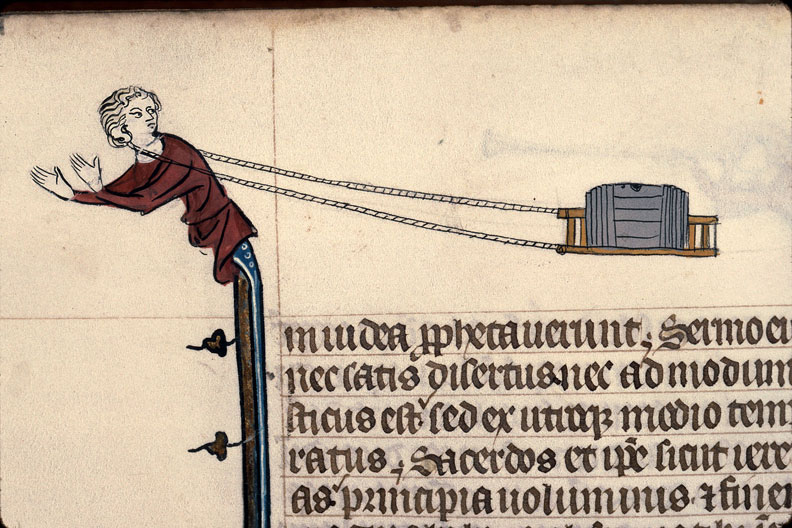 in iudea ꝓphetauerunt; Sermo eiu
nec satis disertus nec admodum
sticus est͛ sed ex utroqꝫ medio tem
ratus; Sacerdos et ip̄e sicut iere
as principia uoluminis ⁊ finem